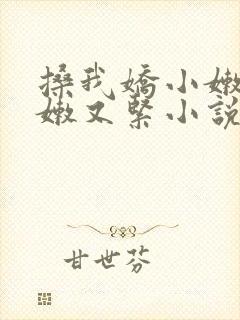 搡我嬌小嫩
嫩又緊小說
甘世芬